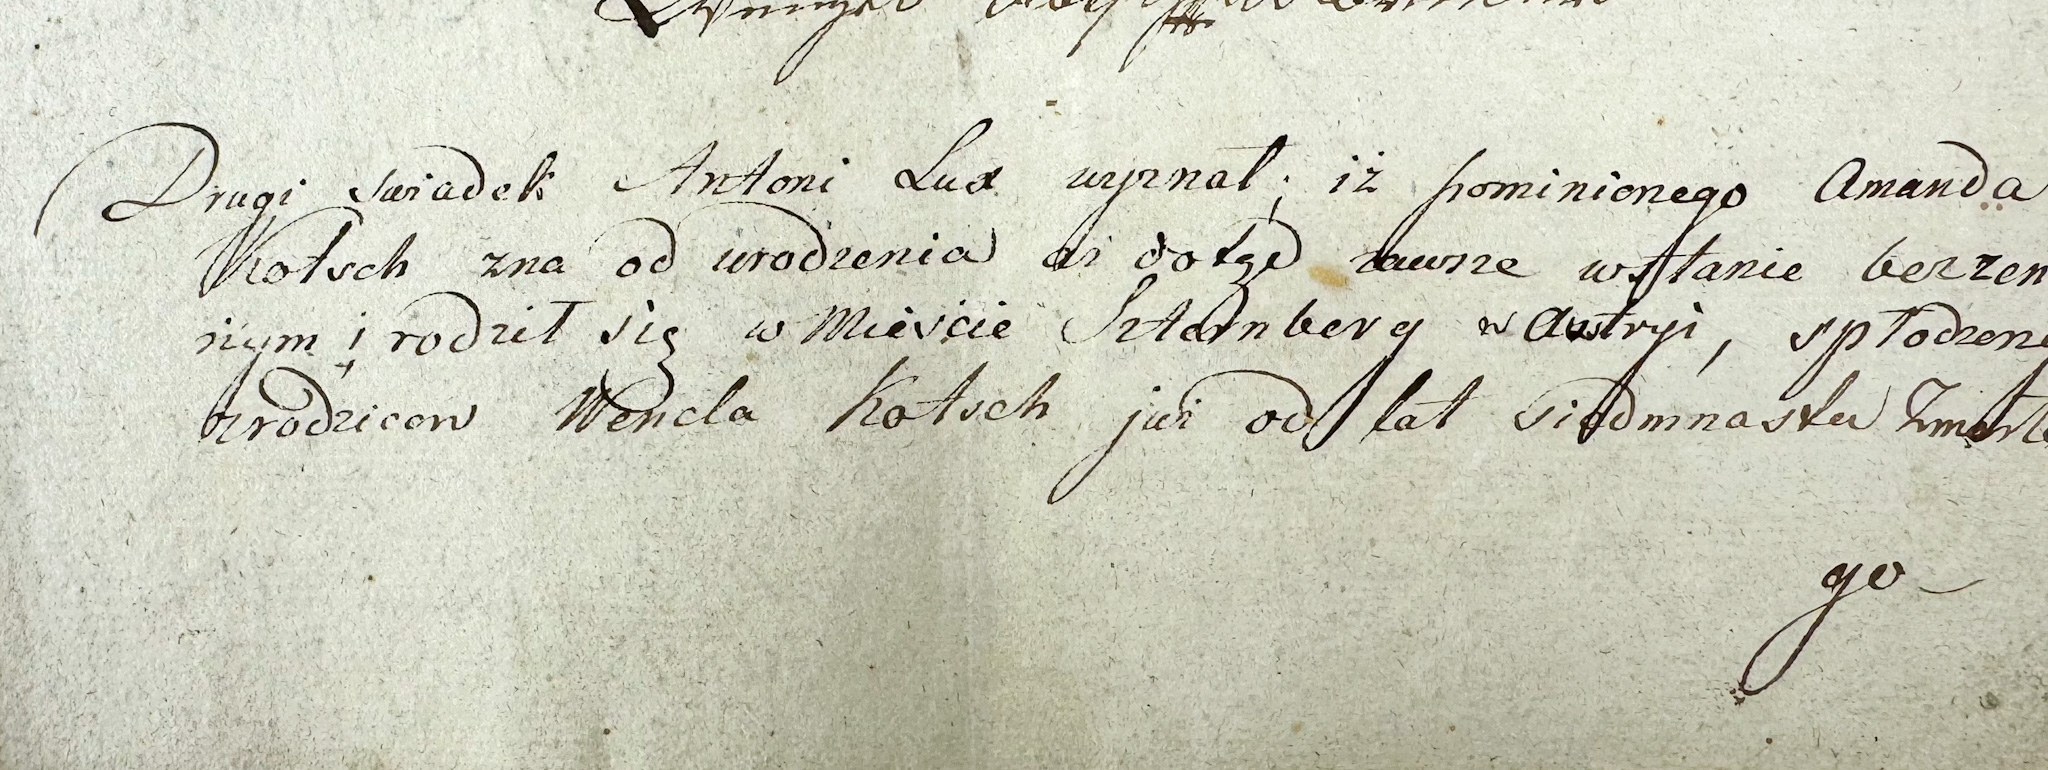 Drugi swiadek Antoni Lux wyznał; iż pominionego Amanda
Kotsch zna od urodzenia aż dotąd zawsze wstanie bezzen
nym; rodził się w Mieście Szternberg w Austryi, spłodzony
zrodzicow Wencla Kotsch już od lat siedmnastu Zmarłe
go